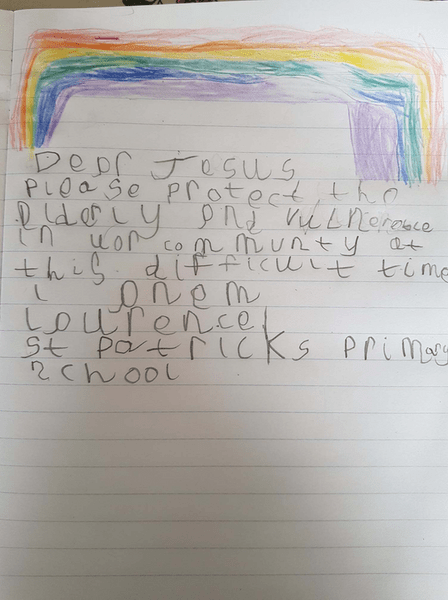 Dear Jesus
please protect the
elderly and vulnerable
in uor communty at
this difficult time
i amem
Laurence
St patricks primary
school